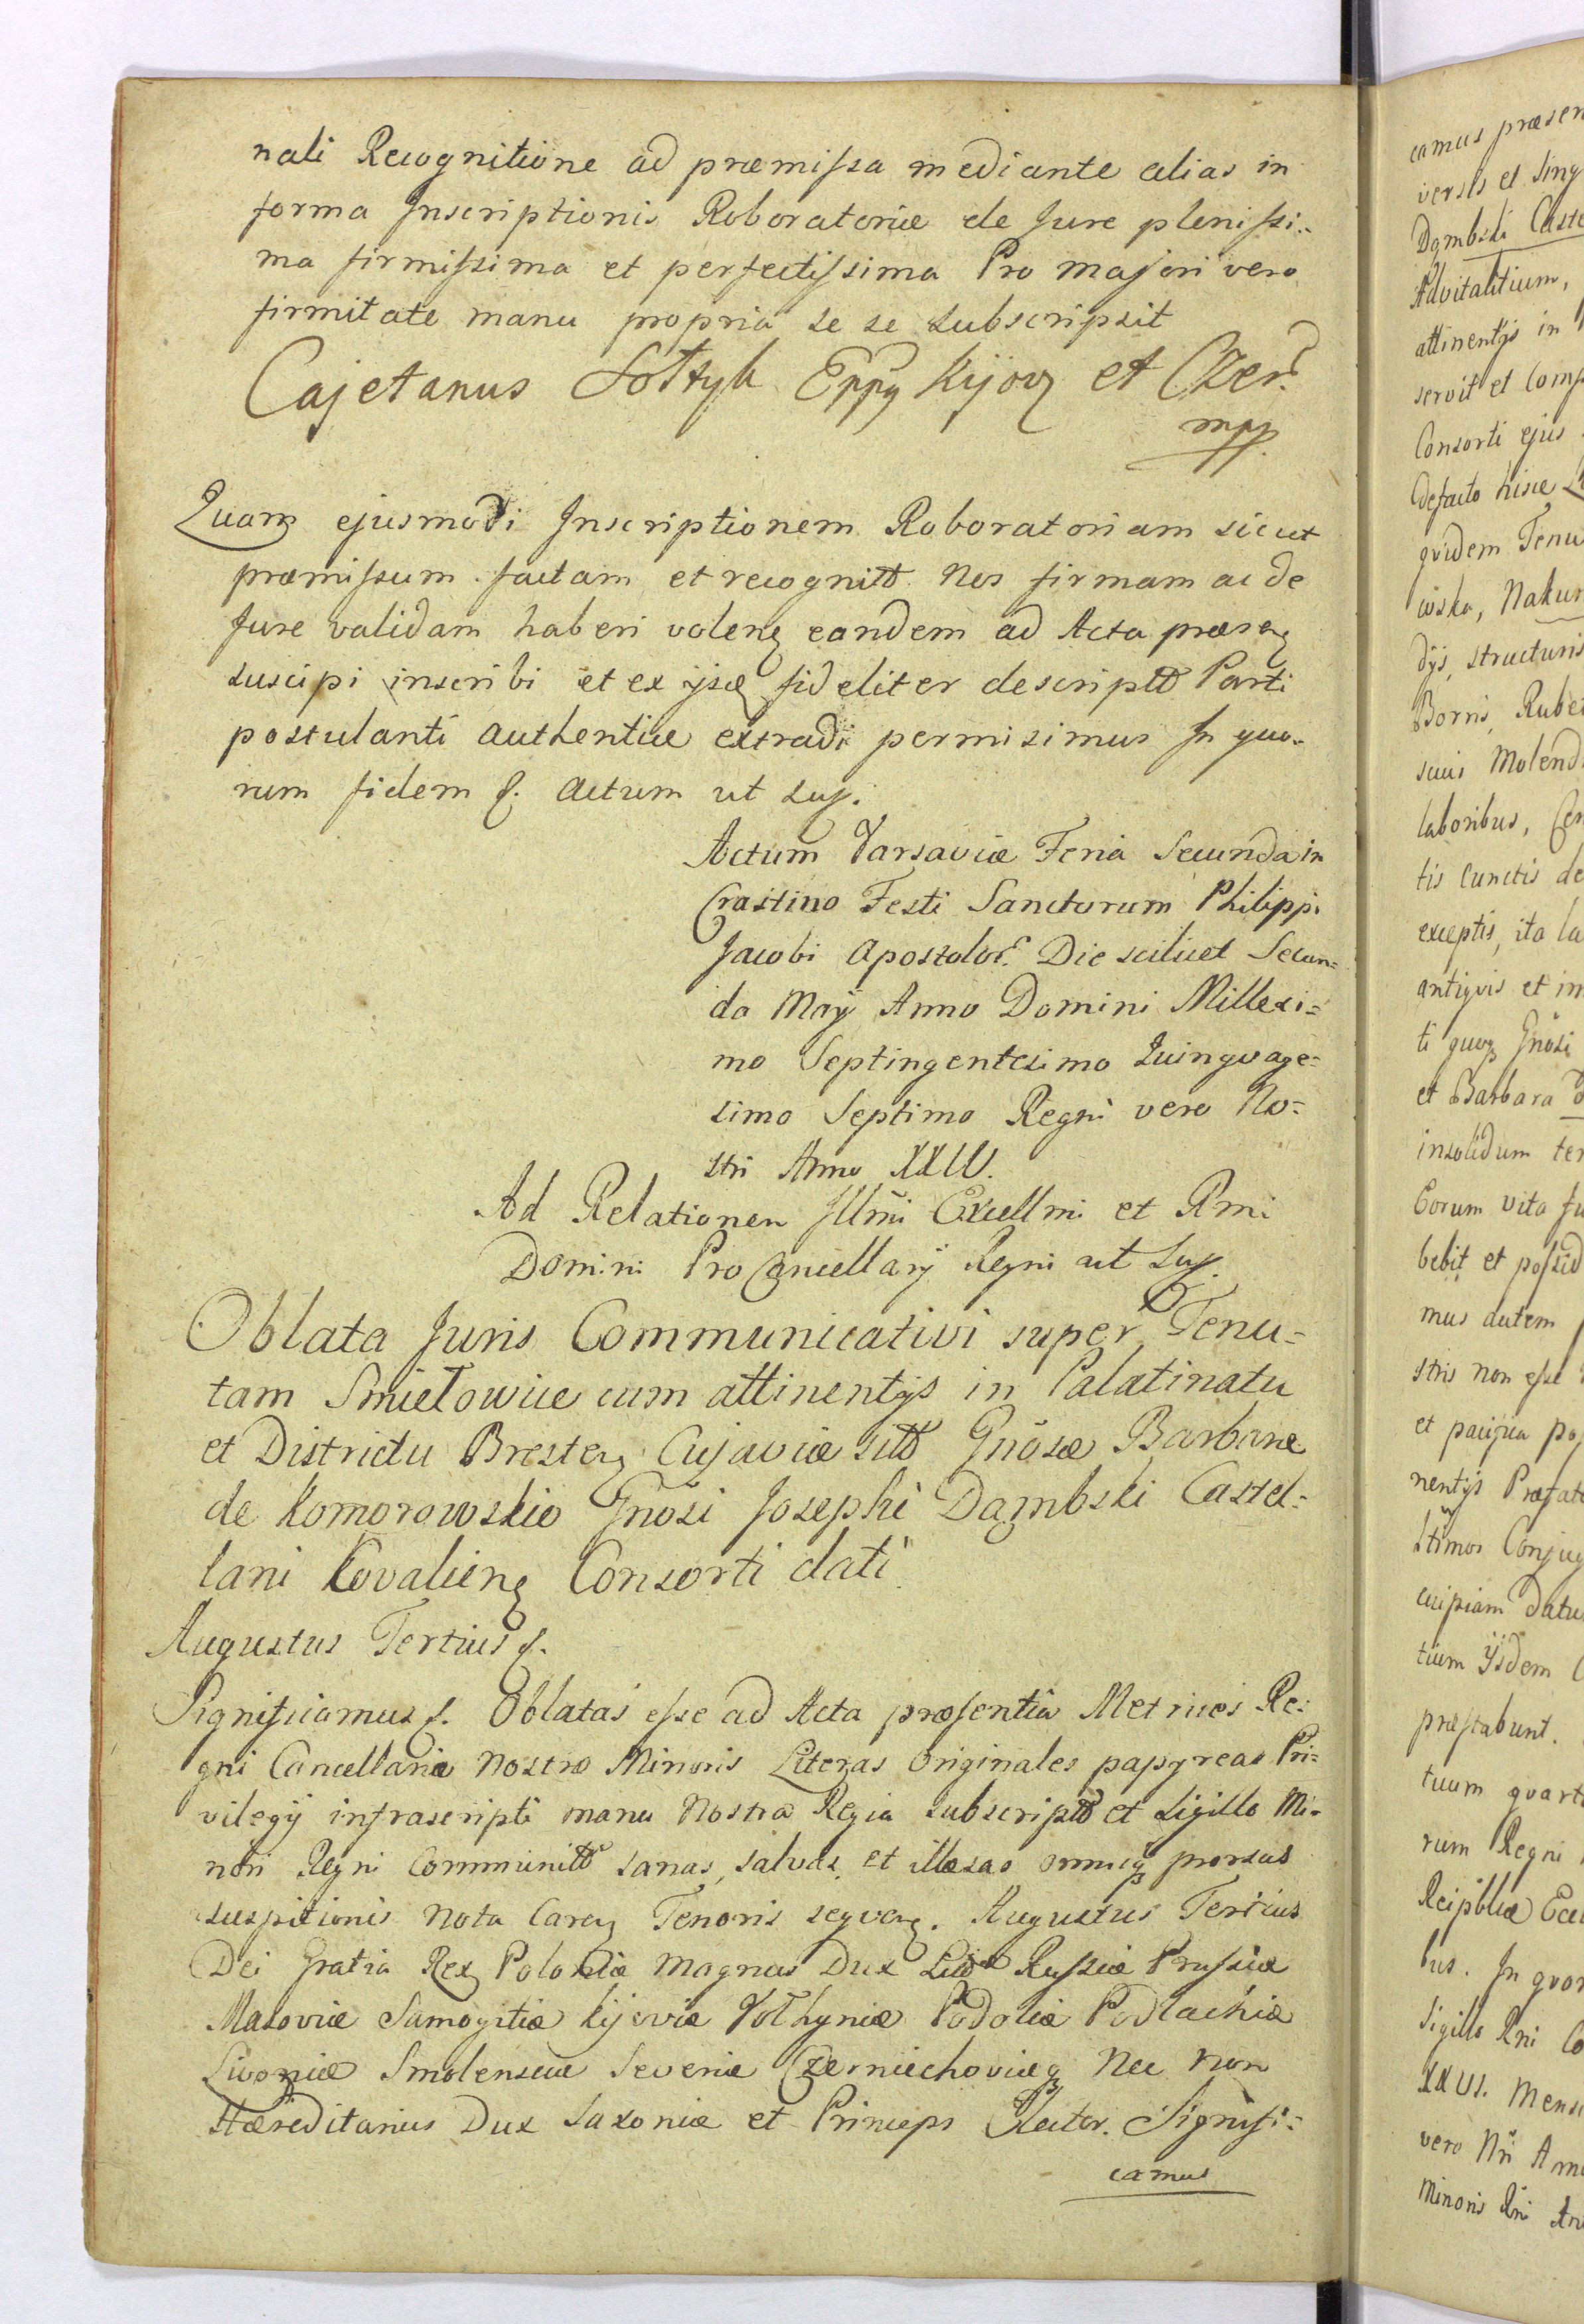 nali Recognitione ad præmissa mediante alias in
forma Inscriptionis Roboratoriæ de Jure plenissi=
ma firmissima et perfectissima Pro majori vero
firmitate manu propria se se subscripsit
Cajetanus Sołtyk Eppꝫ Kijovꝫ et Czer.
mpp.
Quam ejusmodi Inscriptionem Roboratoriam sicut
præmissum factam et recognitt Nos firmam ac de
Jure validam haberi volenꝫ eandem ad Acta præsenꝫ
suscipi inscribi et ex ijsꝫ fideliter descriptt Parti
postulanti authentice extradi permisimus In quo=
rum fidem p. Actum ut sup.
Actum Varsaviæ Feria Secunda in
Crastino Festi Sanctorum Philippi
Jacobi Apostolor. Die scilicet Secun=
da Maij Anno Domini Millesi=
mo Septingentesimo Quinqvage=
simo Septimo Regni vero No=
stri Anno XXIV.
Ad Relationem Illmi Excellmi et Rmi
Domini ProCancellarij Regni ut Sup.
Oblata Juris Communicativi super Tenu=
tam Smiełowice cum attinentijs in Palatinatu
et Districtu Brestenꝫ Cujaviæ sitt Gnosæ Barbaræ
de Komorowskie Gnosi Josephi Dąmbski Castel=
lani Kovaliensꝫ Consorti dati
Augustus Tertius p.
Significamus p. Oblatas esse ad Acta præsentia Metrices Re=
gni Cancellariæ Nostræ Minoris Literas Originales papyreas Pri=
vilegij infrascripti manu Nostra Regia subscriptt et Sigillo Mi=
nori Regni Communitt sanas, salvas, et illæsas omniqꝫ prorsus
suspitionis nota Carenꝫ Tenoris seqvenꝫ. Augustus Tertius
Dei Gratia Rex Poloniæ Magnus Dux Litt Russiæ Prussiæ
Masoviæ Samogitiæ Kijoviæ Vołhyniæ Podoliæ Podlachiæ
Livoniæ Smolensciæ Severiæ Czerniechoviæqꝫ Nec non
Hæreditarius Dux Saxoniæ et Princeps Elector. Signifi=
camus
camus præsen
versis et sing
Dąmbski Caste
Advitalitium,
attinentijs in
servit et Comp
Consorti ejus
defacto hisce
qvidem Tenu
Nakur
dijs, structuris
Borris, Rube
Molend
laboribus, Cen
tis cunctis de
exceptis, ita la
antiqvis et in
ti quoqꝫ Gnosi
et Barbara
insolidum ter
Eorum vita
bebit et possid
mus autem
stris non esse
et pacifica pos
nentijs Præfat
Conjug
cuipiam datu
tium ijsdem
præstabunt.
tuum qvart
rum Regni
Reipblcæ Eccl
bus. In qvor
Sigillo Rni Co
Mens
vero Nri Ann
Minoris Rni